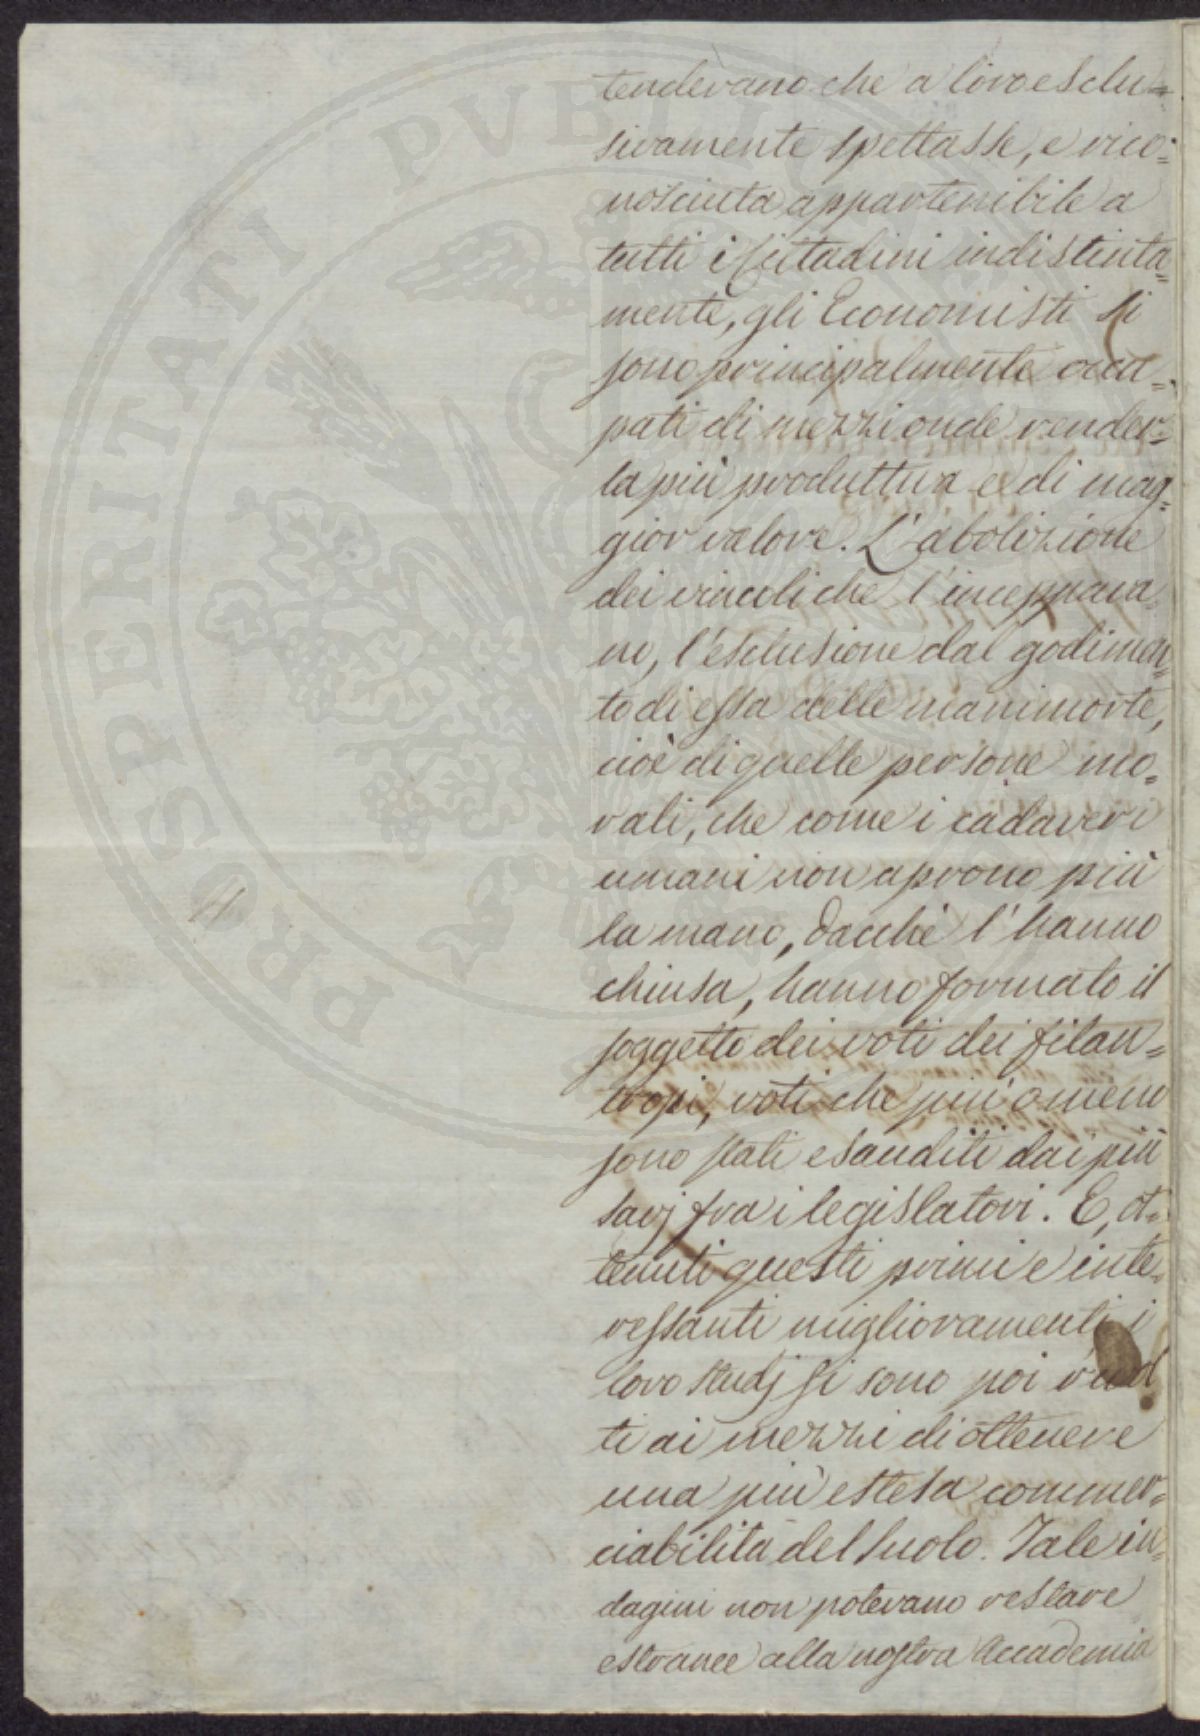 PROSPERITATI PUBLICAE
tendevano che a loro esclu=
sivamente spettasse, e rico=
nosciuta appartenibile a
tutti i Cittadini indistinta=
mente, gli Economisti si
sono principalmente occu=
pati di mezzi onde render=
la più produttiva e di mag=
gior valore. L'abolizione
dei vincoli che l'inceppava=
no, l'esclusione dal godimen=
to di essa delle manimorte,
cioè di quelle persone mo=
rali, che come i cadaveri
umani non aprono più
la mano, dacchè l'hanno
chiusa, hanno formato il
soggetto dei voti dei filan=
tropi, voti che più o meno
sono stati esauditi dai più
savj fra i legislatori. E, ot=
tenuti questi primi e inte=
ressanti miglioramenti i
loro studj si sono poi
ti ai mezzi di ottenere
una più estesa commer=
ciabilità del suolo. Tale in=
dagini non potevano restare
estranee alla nostra Accademia